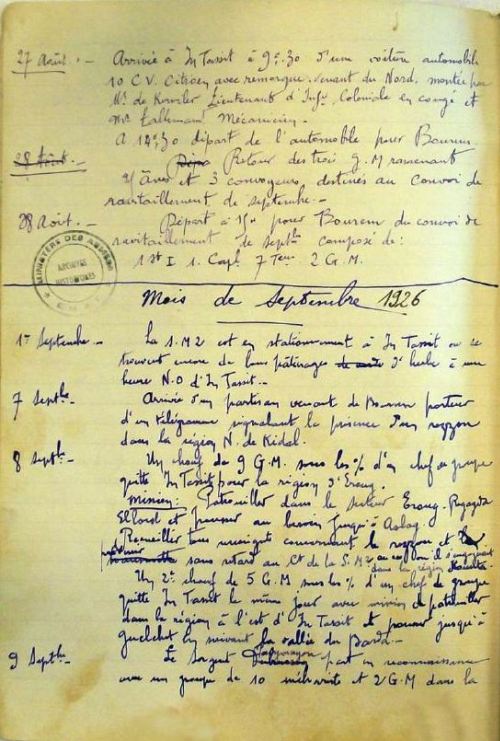 27 Août. - Arrivée à In Tassit à 9h.30 d'une voiture automobile
10 C.V. Citroën avec remorque venant du Nord, montée par
Mr de Lieutenant d'Infie Coloniale en congé et
Mr Lallemant Mécanicien.
A 14h30 départ de l'automobile pour Bourem.
28 Août. - Retour des trois G.M ramenant
25 Anes et 3 convoyeurs, destinés au convoi de
ravitaillement de septembre. -
28 Août. - Départ à pour Bourem du convoi de
ravitaillement de septbre composé de:
1 Sgt I 1. Capl 7 Teurs 2 G.M.
MINISTÈRE DES ARMÉES
ARCHIVES
HISTORIQUES
Mois de Septembre 1926
1er Septembre - La S.M2 est en stationnement à In Tassit où se
trouvent encore de bons pâturages d'herbe à une
heure N.O d'In Tassit. -
7 Septbre - Arrivée d'un partisan venant de Bourem porteur
d'un télégramme signalant la présence d'un rezzou
dans la région N. de Kidal.
8 Septbre - Un de 9 G.M. sous les % d'un chef de groupe
quitte In Tassit pour la région d'Eroug.
Mission: Patrouiller dans le secteur Eroug-
et pousser au besoin jusqu'à
Recueillir tous renseigts concernant le rezzou et
sans retard au Ct de la S.M2
dans la région
Un 2e de 5 G.M sous les % d'un chef de groupe
quitte In Tassit le même jour avec mission de patrouiller
dans la région à l'est d'In Tassit et pousser jusqu'à
en suivant la vallée du
9 Septbre - Le Sergent part en reconnaissance
avec un groupe de 10 méharistes et 2 G.M dans la